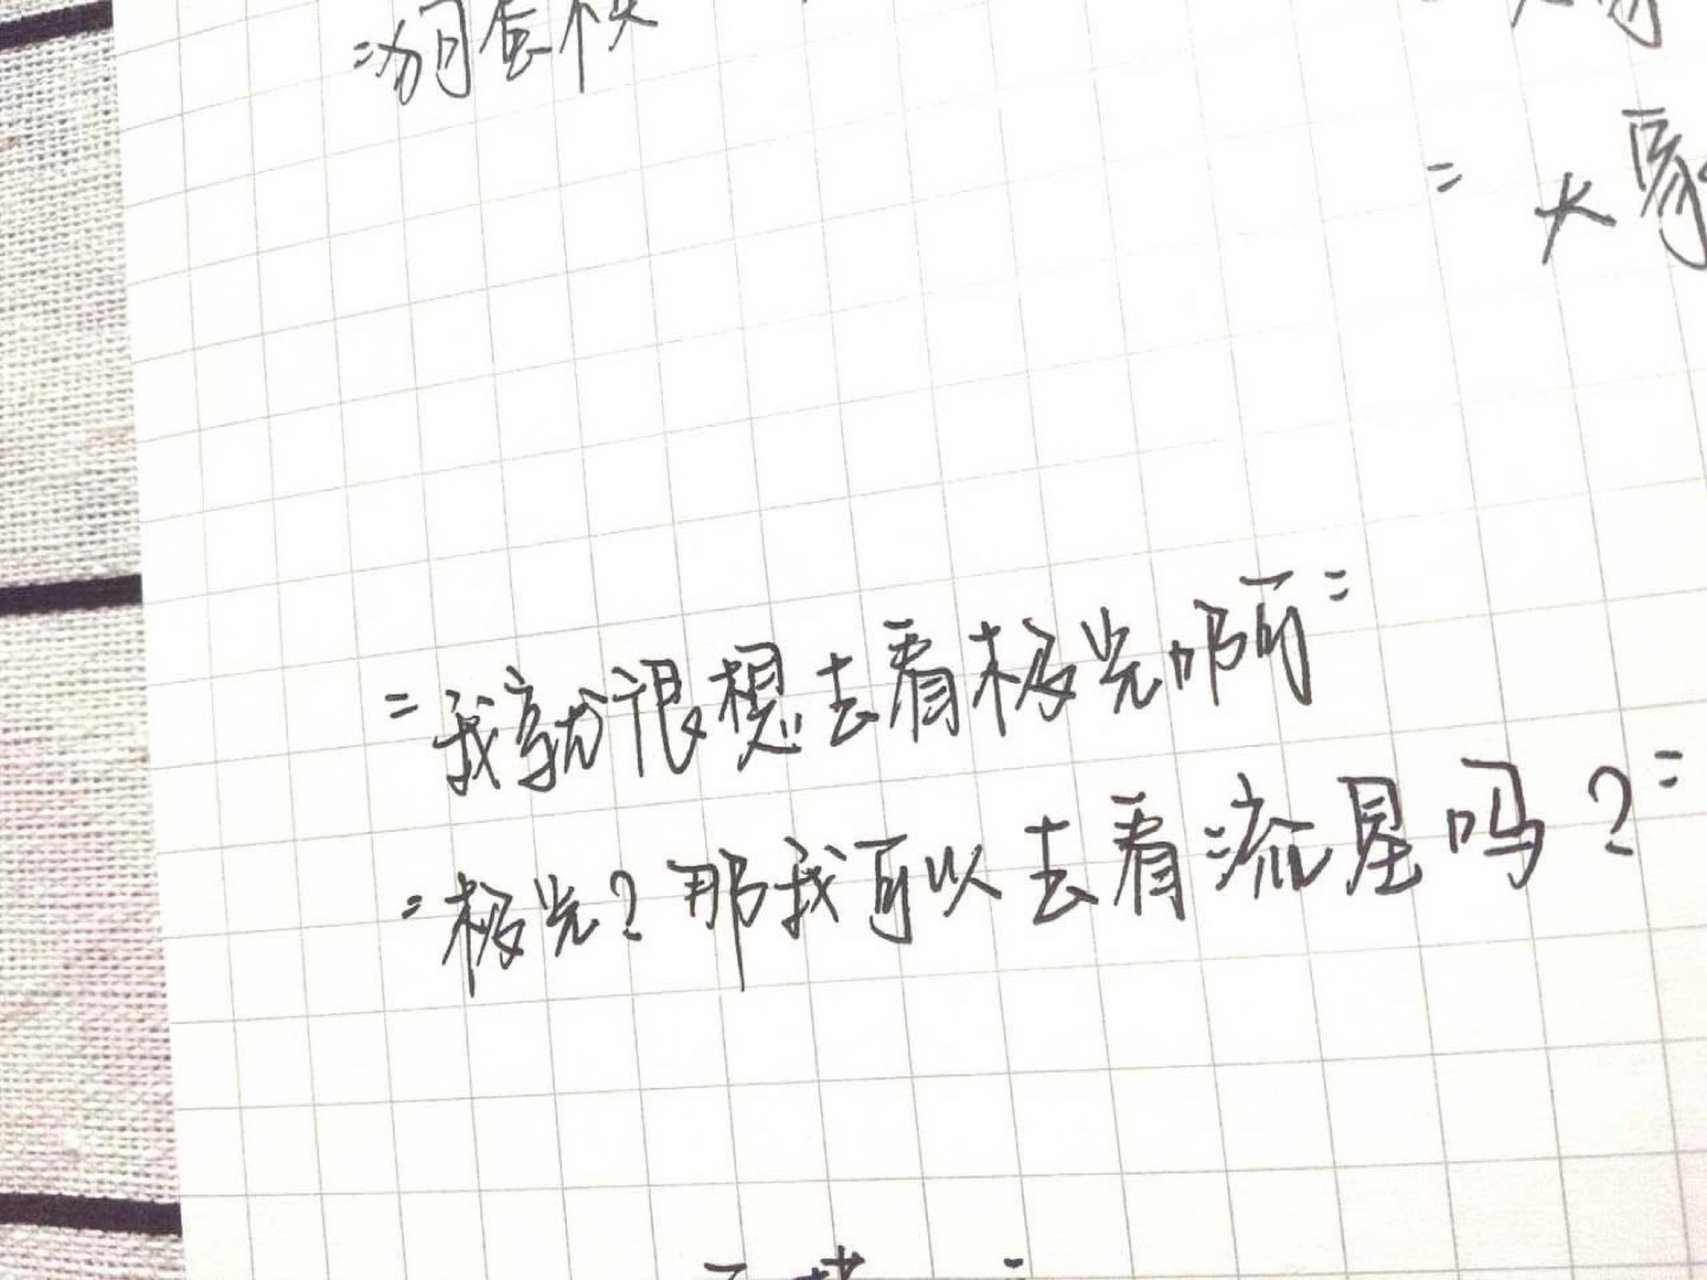 "狗蛋快
"大家
"我就很想去看极光啊"
"极光？那我可以去看流星吗？"